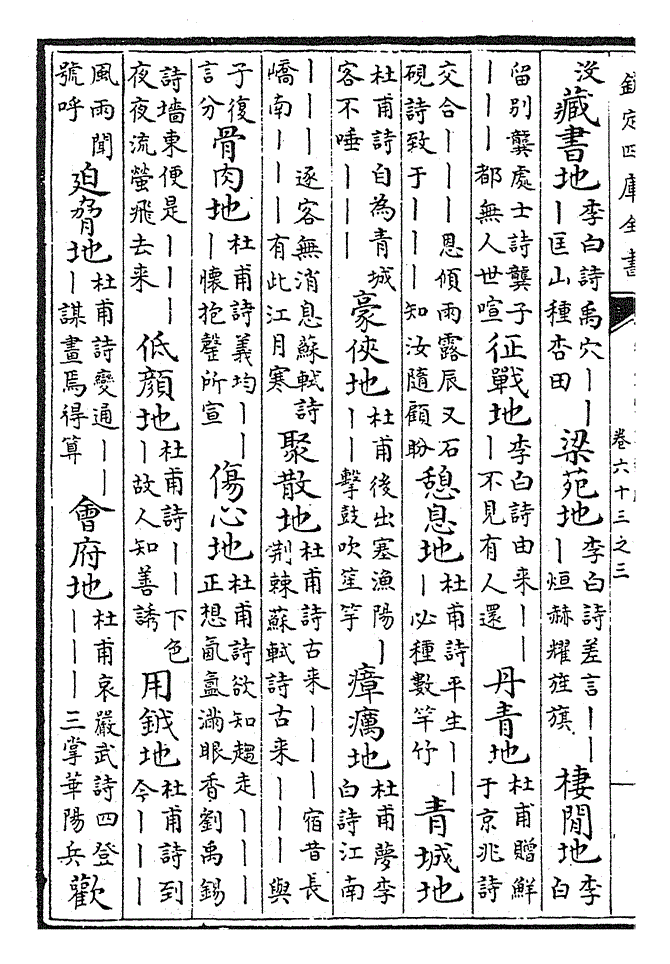 欽定四庫全書
卷六十三之三
没藏書地李白詩禹穴丨丨丨匡山種杏田梁苑地李白詩差言丨丨丨烜赫耀旌旗棲閒地李白
留别龔處士詩龔子丨丨丨都無人世喧征戰地李白詩由来丨丨丨不見有人還丹青地杜甫贈鮮于京兆詩
交合丨丨丨恩傾雨露辰又石硯詩致于丨丨丨知汝隨顧盼憩息地杜甫詩平生丨丨丨必種數竿竹青城地
杜甫詩自為青城客不唾丨丨丨豪俠地杜甫後出塞漁陽丨丨丨擊鼓吹笙竽瘴癘地杜甫夢李白詩江南
丨丨丨逐客無消息蘇軾詩嶠南丨丨丨有此江月寒聚散地杜甫詩古来丨丨丨宿昔長荆棘蘇軾詩古来丨丨丨與
子復言分骨肉地杜甫詩義均丨丨丨懷抱罄所宣傷心地杜甫詩欲知趨走丨丨丨正想氤氳滿眼香劉禹錫
詩墻東便是丨丨丨夜夜流螢飛去来低顔地杜甫詩丨丨丨下色故人知善誘用鉞地杜甫詩到今丨丨丨
風雨聞號呼迫脅地杜甫詩變通丨丨丨謀畫焉得算會府地杜甫哀嚴武詩四登丨丨丨三掌華陽兵歡